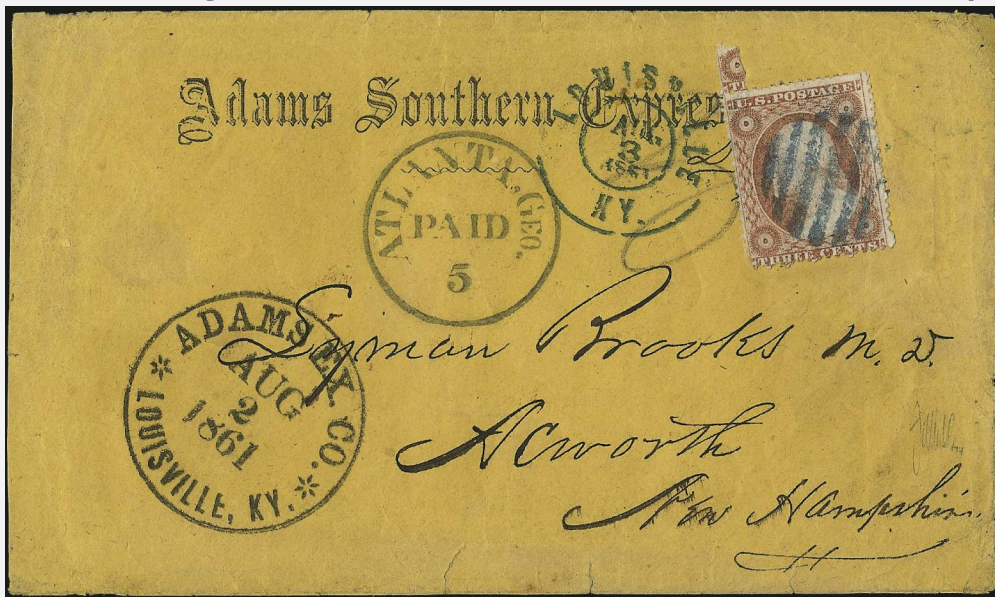 Adams Southern Express
LOUISVILLE
AUG.
3
1861
KY.
U.S. POSTAGE
THREE CENTS
ATLANTA, GEO.
PAID
5
ADAMS EX. CO.
AUG
2
1861
LOUISVILLE, KY.
Lyman Brooks M. D.
Acworth
New Hampshire